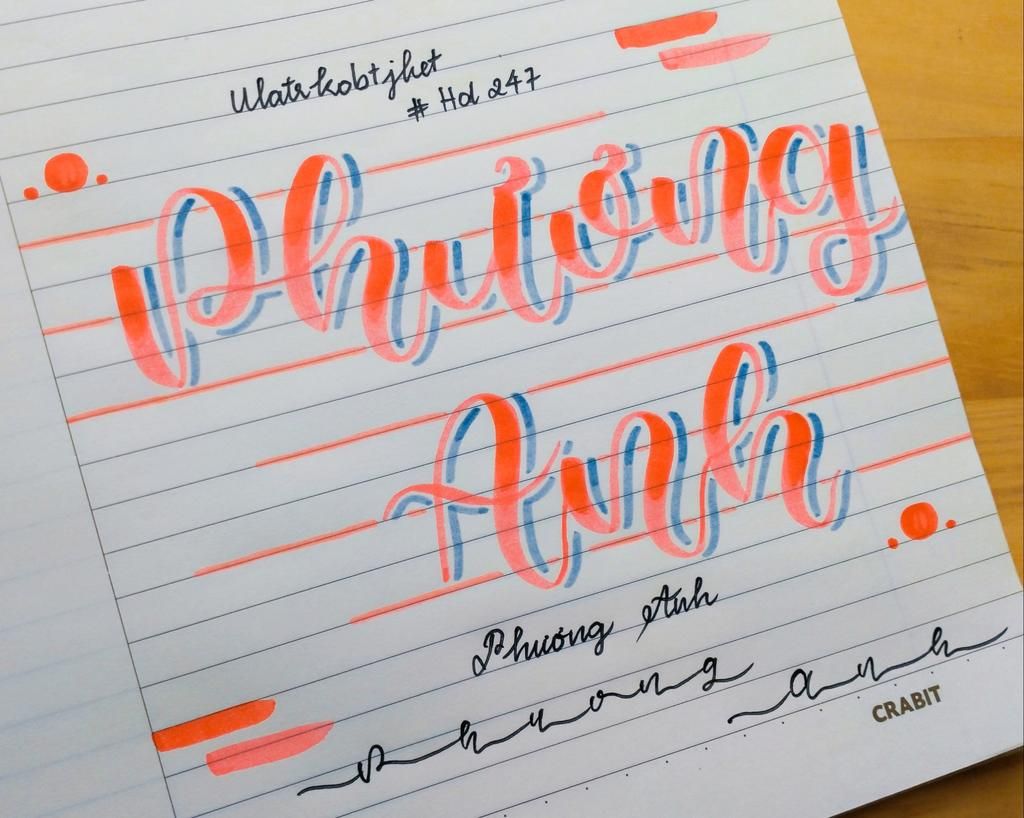 Ulatrkobtjhet
# Hd 247
Phương
Anh
Phương Anh
phuong anh
CRABIT